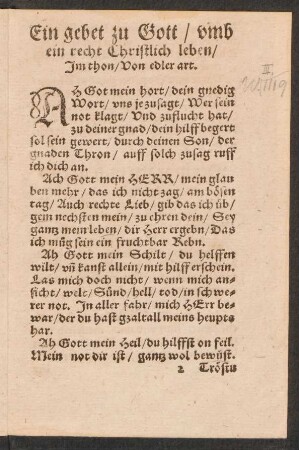 Ein gebet zu Gott / vmb
ein recht Christlich leben /
Im thon / Von edler art.
AH Got mein hort / dein gnedig
Wort / vns je zusagt / Wer sein
not klagt / Vnd zuflucht hat /
zu deiner gnad / dein hilff begert
sol sein gewert / durch deinen Son / der
gnaden Thron / auff solch zusag ruff
ich dich an.
Ach Gott mein HERR / mein glau
ben mehr / das ich nit zag / am bösen
tag / Auch rechte Lieb / gib das ich üb /
gem nechsten mein / zu ehren dein / Sey
gantz mein leben / dir Herr ergebn / Das
ich müg sein ein fruchtbar Rebn.
Ah Gott mein Schilt / du helffen
wilt / vñ kanst allein / mit hilff erschein.
Las mich doch nicht / wenn mich an-
sicht / welt / Sünd / hell / tod / in schwe-
rer not. In aller fahr / mich HErr be-
war / der du hast gzalt all meins heupts
har.
Ah Gott mein Heil / du hilffst on feil.
Mein not dir ist / gantz wol bewüst.
2 Tröstu